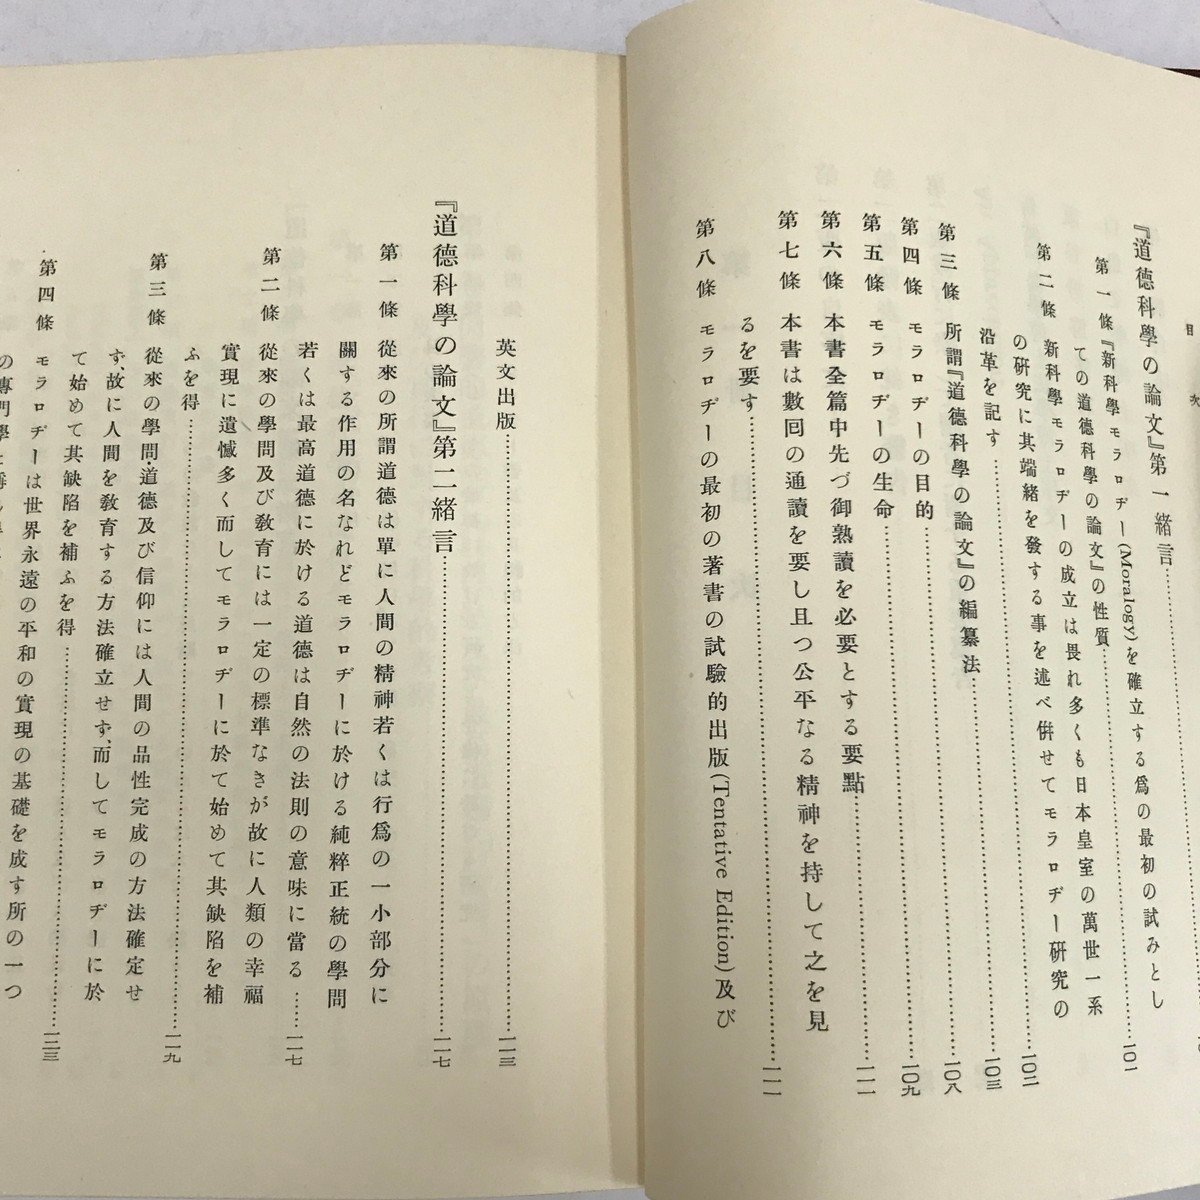 目次
『道德科學の論文』第一緖言……
第一條 『新科學モラロヂー(Moralogy)を確立する爲の最初の試みとし
ての道德科學の論文』の性質……一〇一
第二條 新科學モラロヂーの成立は畏れ多くも日本皇室の萬世一系
の研究に其端緖を發する事を述べ併せてモラロヂー研究の
沿革を記す……一〇二
第三條 所謂『道德科學の論文』の編纂法……一〇三
第四條 モラロヂーの目的……一〇八
第五條 モラロヂーの生命……一〇九
第六條 本書全篇中先づ御熟讀を必要とする要點……一一一
第七條 本書は數回の通讀を要し且つ公平なる精神を持して之を見
るを要す……一一一
第八條 モラロヂーの最初の著書の試驗的出版(Tentative Edition)及び
英文出版……一一三
『道德科學の論文』第二緖言……一一七
第一條 從來の所謂道德は單に人間の精神若くは行爲の一小部分に
關する作用の名なれどモラロヂーに於ける純粹正統の學問
若くは最高道德に於ける道德は自然の法則の意味に當る……一一七
第二條 從來の學問及び敎育には一定の標準なきが故に人類の幸福
實現に遺憾多く而してモラロヂーに於て始めて其缺陷を補
ふを得……一一九
第三條 從來の學問、道德及び信仰には人間の品性完成の方法確定せ
ず、故に人間を敎育する方法確立せず、而してモラロヂーに於
て始めて其缺陷を補ふを得……一二三
第四條 モラロヂーは世界永遠の平和の實現の基礎を成す所の一つ
の專門學